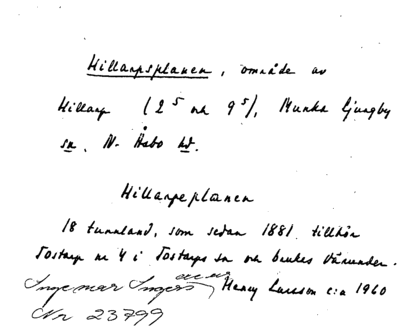 Hillarpsplanen, område av
Hillarp (2⁵ och 9⁵), Munka Ljungby
sn. N. Åsbo hd.
Hillarpeplanen
18 tunnland, som sedan 1881 tillhör
Tostarp nr 4 i Tostarps sn och brukes därunder.
Ingemar Ingers, Henry Larsson c:a 1960
Nr 23799